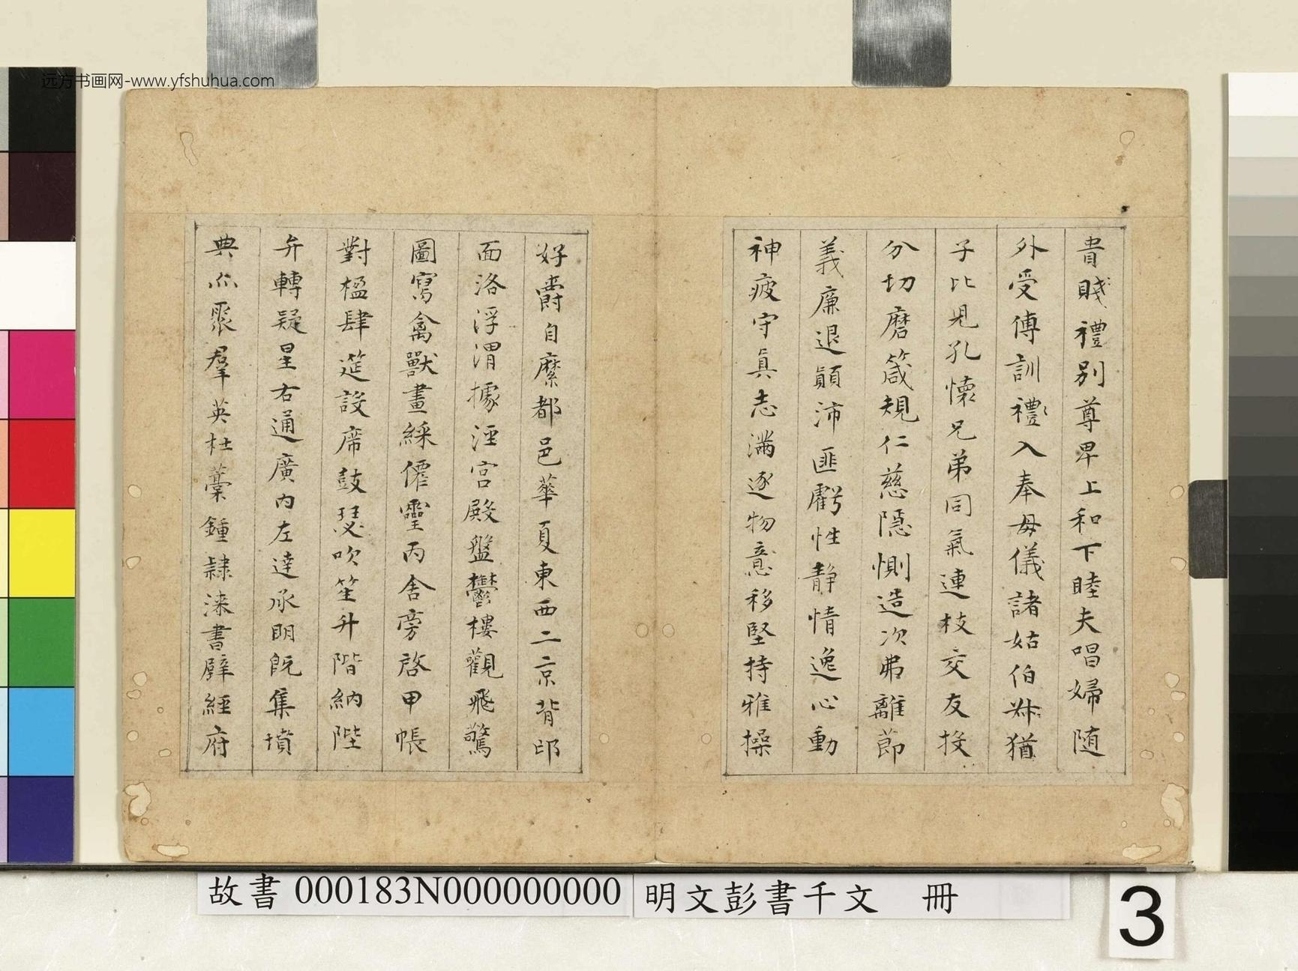 远方书画网-www.yfshuhua.com
貴賤禮別尊卑上和下睦夫唱婦随
外受傅訓禮入奉母儀諸姑伯叔猶
子比兒孔懷兄弟同氣連枝交友投
分切磨箴規仁慈隱惻造次弗離節
義廉退顛沛匪虧性静情逸心動
神疲守真志滿逐物意移堅持雅操
好爵自縻都邑華夏東西二京背邙
面洛浮渭據涇宮殿盤鬱樓觀飛驚
圖寫禽獸畫綵僊靈丙舍旁啓甲帳
對楹肆筵設席鼓瑟吹笙升階納陛
弁轉疑星右通廣内左達承明既集墳
典亦聚羣英杜藁鍾隷漆書壁經府
故書 000183N000000000 明文彭書千文 冊
3